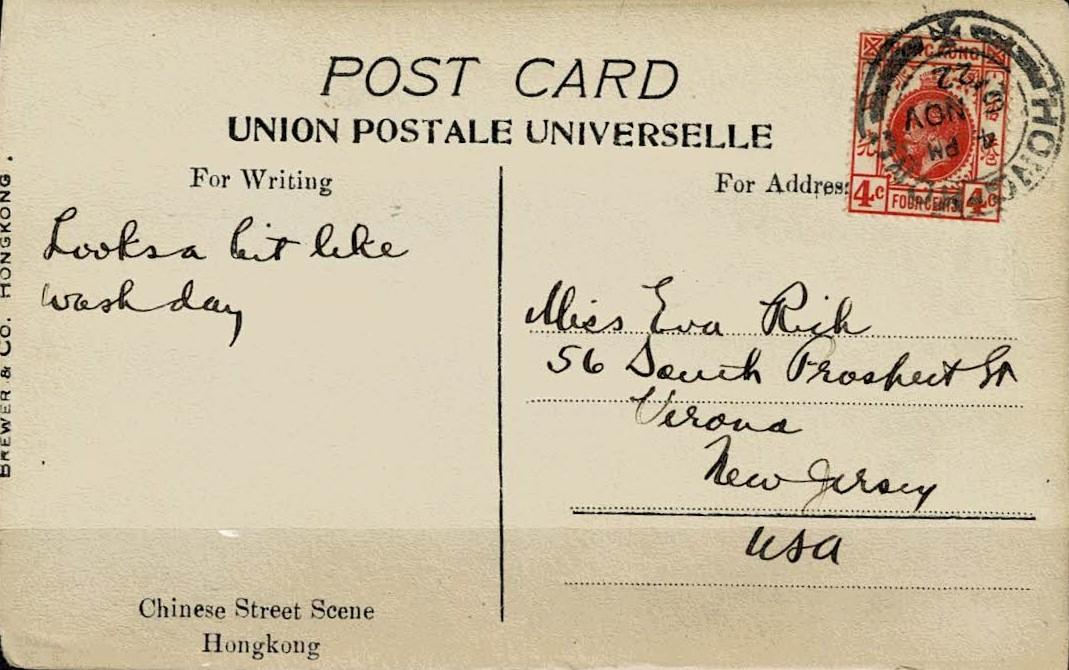 POST CARD
UNION POSTALE UNIVERSELLE
For Writing
For Addres
HONG KONG
4c FOUR CENTS 4c
HONG KONG
4 PM
NOV
22
Looks a bit like
wash day
Miss Eva Rich
56 South Prospect St
Verona
New Jersey
USA
Chinese Street Scene
Hongkong
BREWER & CO. HONGKONG.